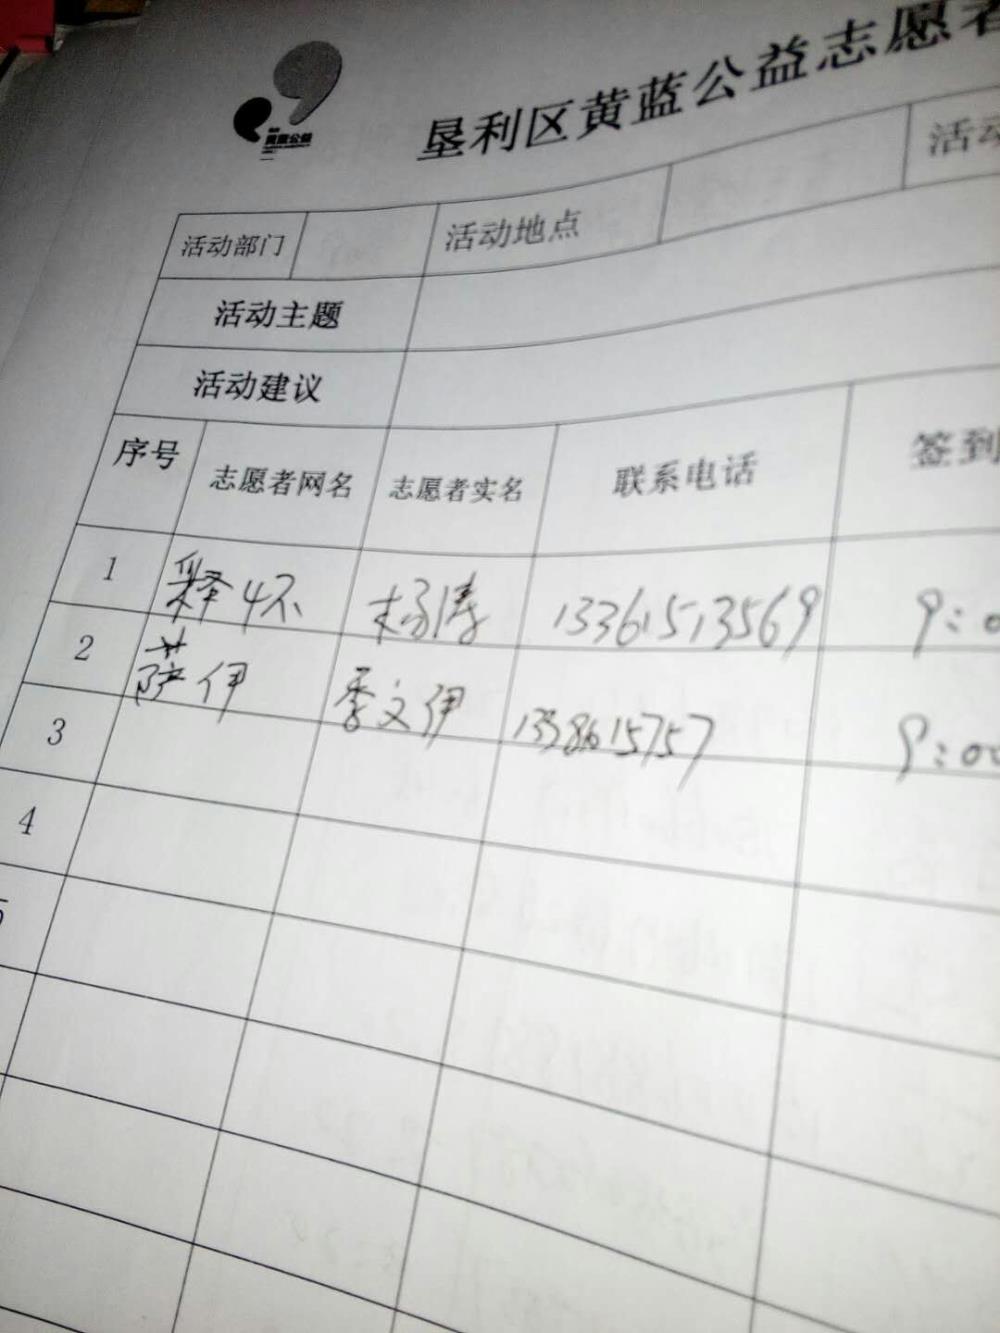 黄蓝公益
垦利区黄蓝公益志愿者
活动部门 活动地点 活动
活动主题
活动建议
序号 志愿者网名 志愿者实名 联系电话 签到
1 释怀 杨涛 13361513569 9:0
2 萨伊 季文伊 1338615757 9:00
3
4
5